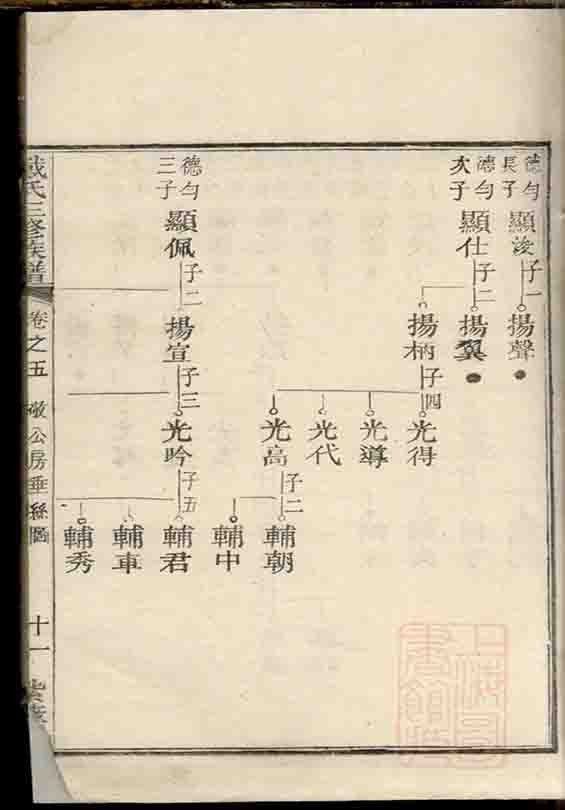 德勻長子
顯浚
子一
揚聲
德勻次子
顯仕
子二
揚翼
揚柄
子四
光得
光導
光代
光高
子二
輔朝
輔中
德勻三子
顯佩
子二
揚宣
子三
光吟
子五
輔君
輔車
輔秀
戴氏三修族譜
卷之五
敬公房垂絲圖
十一